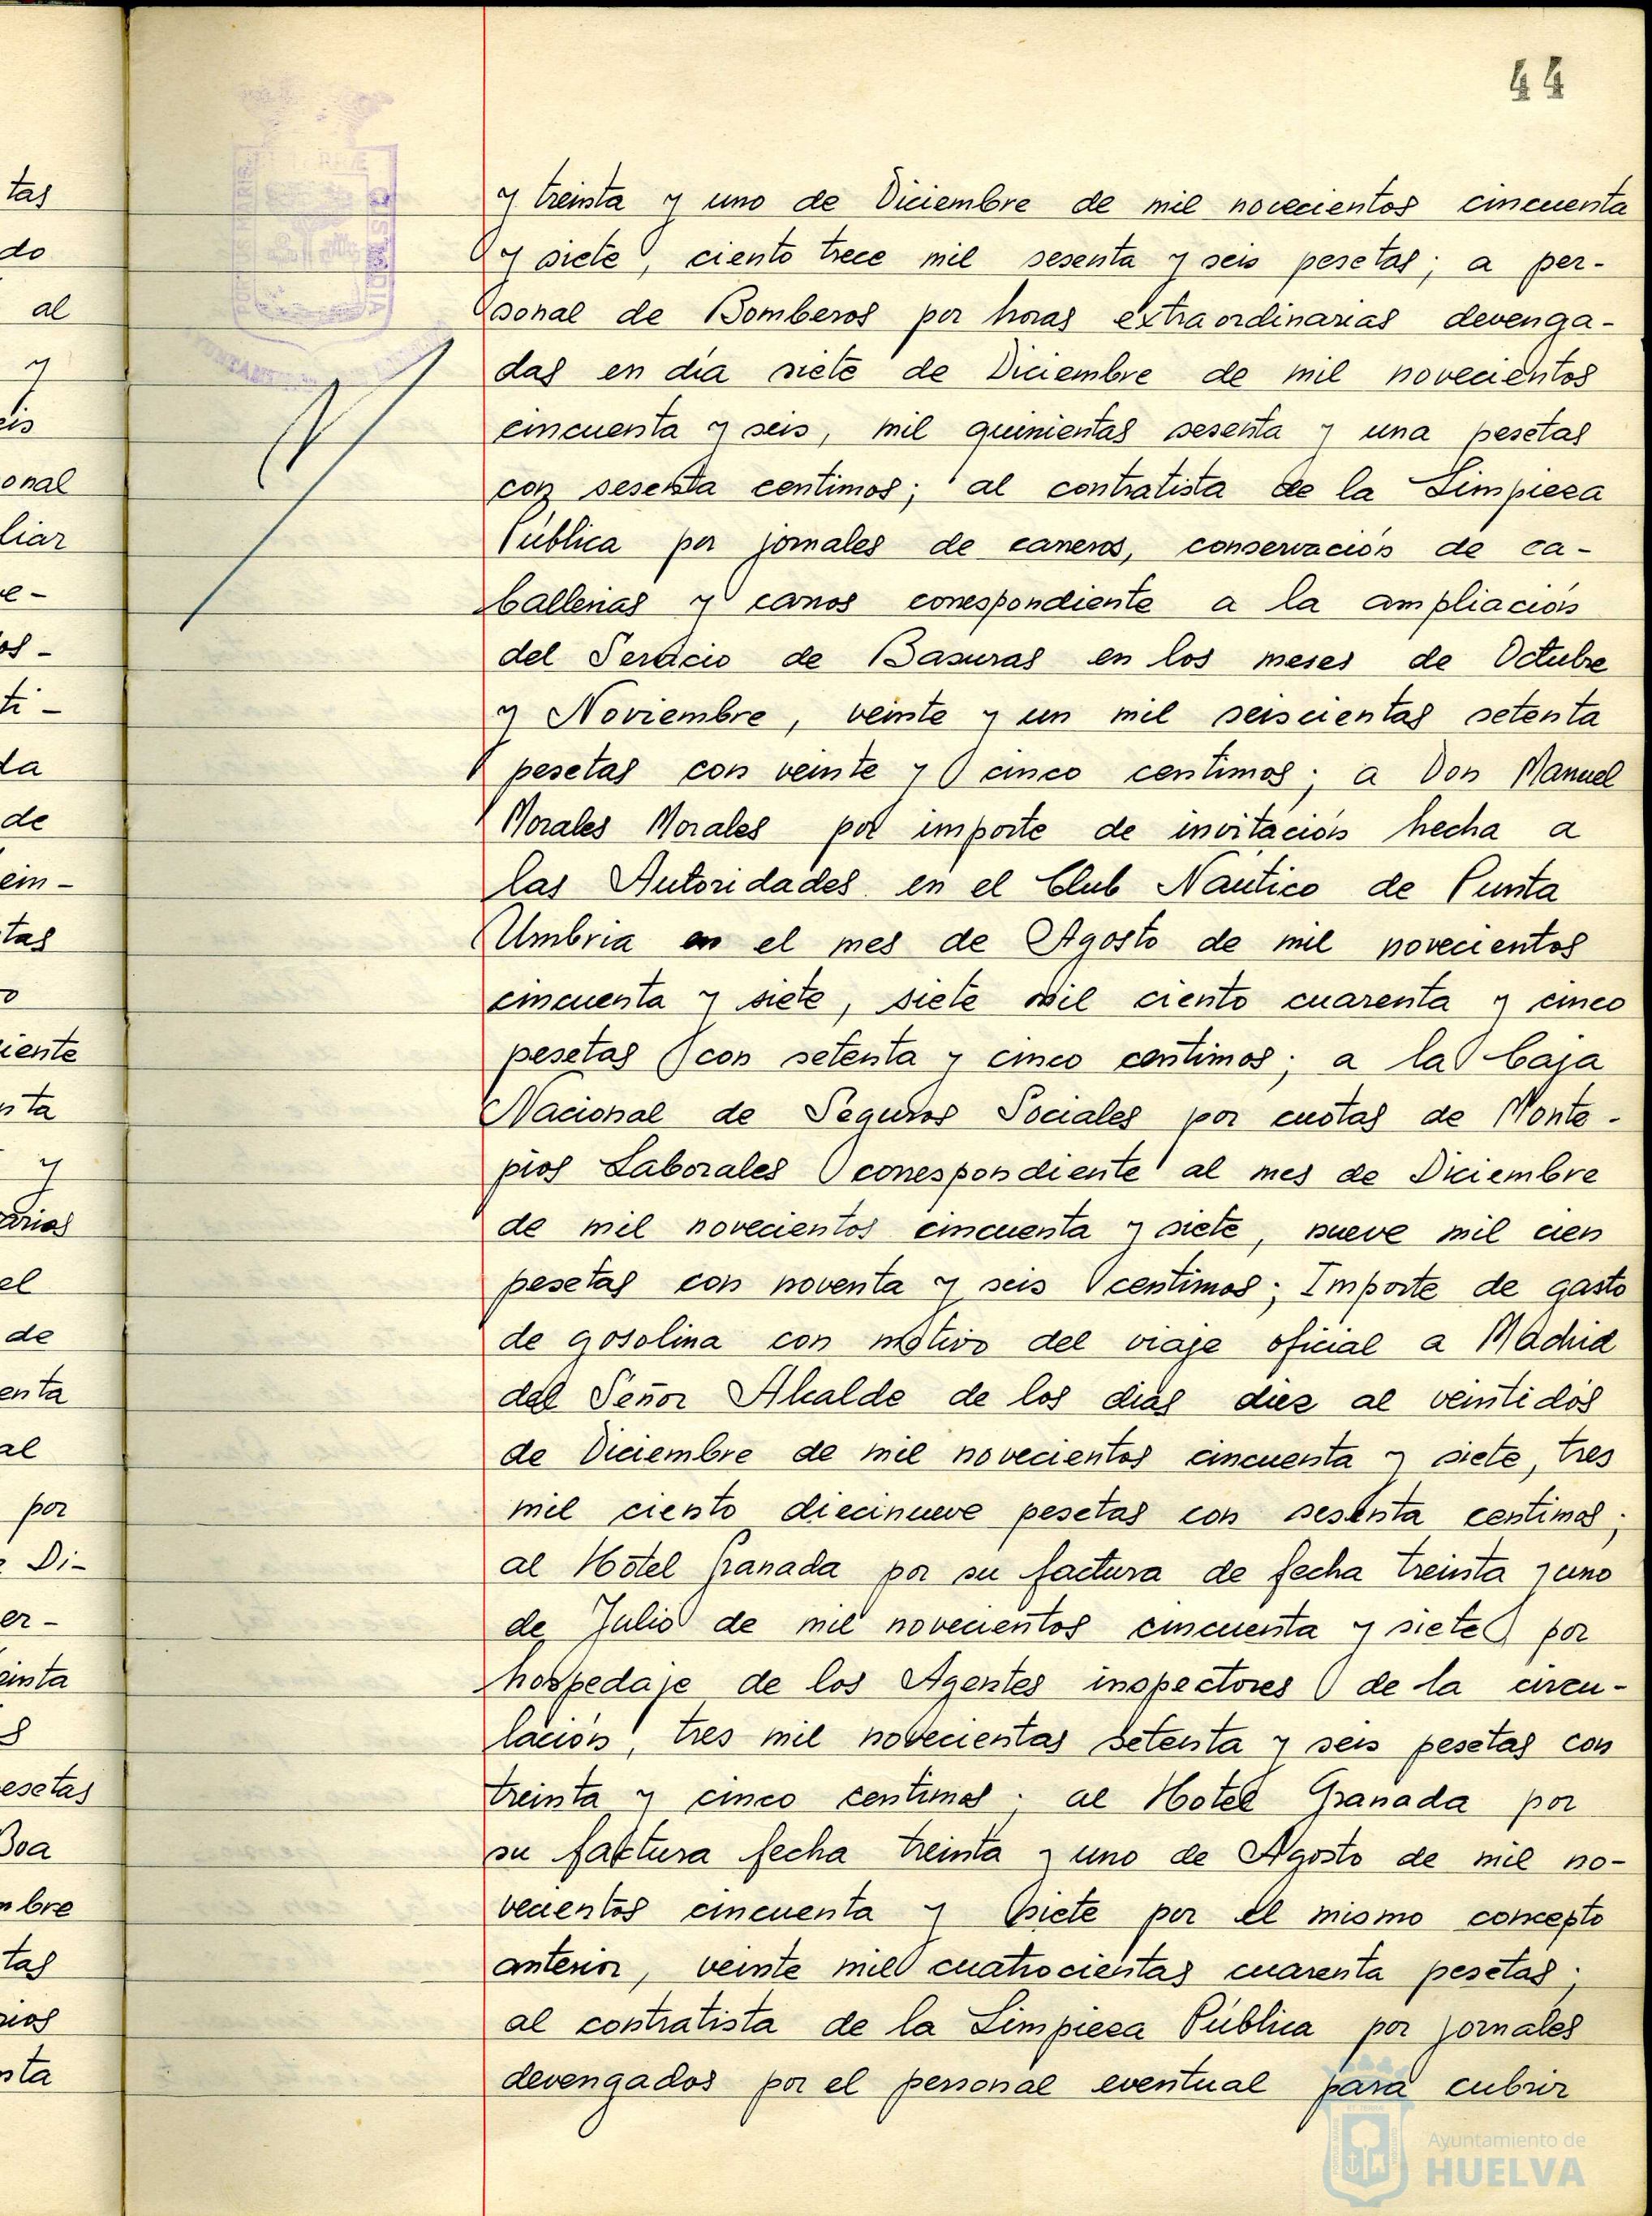 44
tas
do
al
y
eis
onal
liar
e-
os-
ti-
da
de
ein-
tas
o
iente
nta
y
arias
el
de
enta
al
por
e Di-
er-
einta
s
esetas
Boa
mbre
tas
rios
nta
y treinta y uno de Diciembre de mil novecientos cincuenta
y siete, ciento trece mil sesenta y seis pesetas; a per-
sonal de Bomberos por horas extraordinarias devenga-
das en día siete de Diciembre de mil novecientos
cincuenta y seis, mil quinientas sesenta y una pesetas
con sesenta centimos; al contratista de la Limpieza
Pública por jornales de carreros, conservación de ca-
ballerias y carros correspondiente a la ampliación
del Servicio de Basuras en los meses de Octubre
y Noviembre, veinte y un mil seiscientas setenta
pesetas con veinte y cinco centimos; a Don Manuel
Morales Morales por importe de invitación hecha a
las Autoridades en el Club Náutico de Punta
Umbria en el mes de Agosto de mil novecientos
cincuenta y siete, siete mil ciento cuarenta y cinco
pesetas con setenta y cinco centimos; a la Caja
Nacional de Seguros Sociales por cuotas de Monte-
pios Laborales correspondiente al mes de Diciembre
de mil novecientos cincuenta y siete, nueve mil cien
pesetas con noventa y seis centimos; Importe de gasto
de gosolina con motivo del viaje oficial a Madrid
del Señor Alcalde de los dias diez al veintidós
de Diciembre de mil novecientos cincuenta y siete, tres
mil ciento diecinueve pesetas con sesenta centimos;
al Hotel Granada por su factura de fecha treinta y uno
de Julio de mil novecientos cincuenta y siete por
hospedaje de los Agentes inspectores de la circu-
lación, tres mil novecientas setenta y seis pesetas con
treinta y cinco centimos; al Hotel Granada por
su factura fecha treinta y uno de Agosto de mil no-
vecientos cincuenta y siete por el mismo concepto
anterior, veinte mil cuatrocientas cuarenta pesetas;
al contratista de la Limpieza Pública por jornales
devengados por el personal eventual para cubrir
Ayuntamiento de
HUELVA